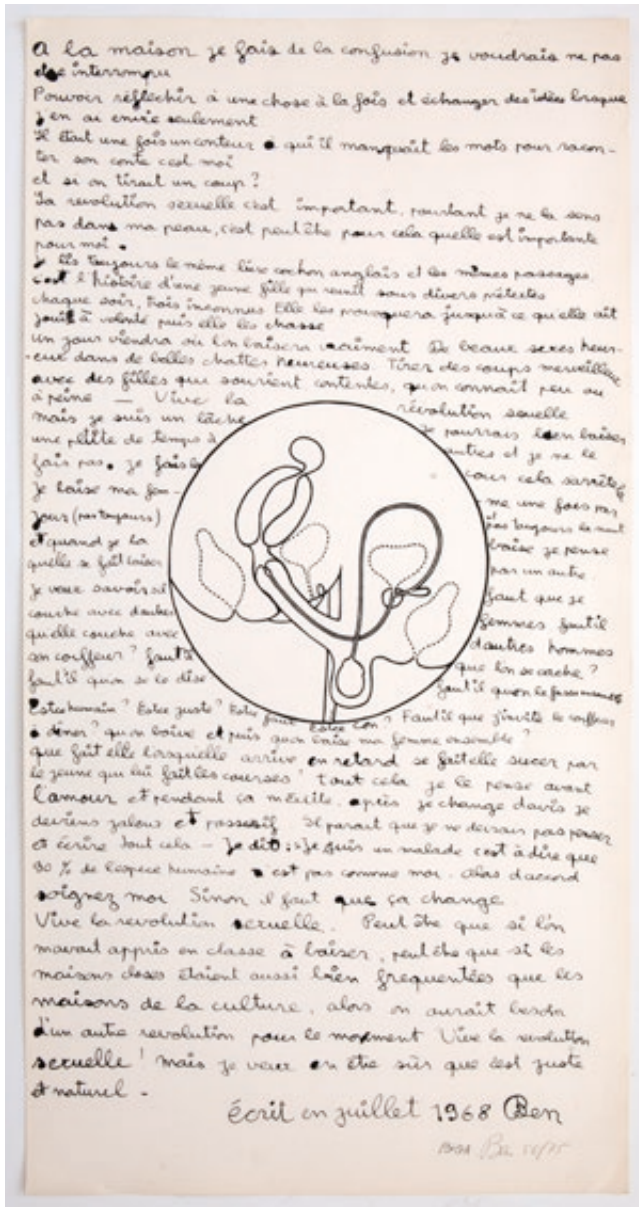 a la maison je fais de la confusion je voudrais ne pas
etre interrompu
Pouvoir réfléchir à une chose à la fois et échanger des idées lorsque
j'en ai envie seulement
Il était une fois un conteur à qui il manquait les mots pour racon-
ter son conte c'est moi
et si on tirait un coup ?
La revolution sexuelle c'est important, pourtant je ne la sens
pas dans ma peau, c'est peut être pour cela quelle est importante
pour moi.
je lis toujours le même livre cochon anglais et les mêmes passages.
c'est l'histoire d'une jeune fille qui reunit sous divers prétextes
chaque soir, trois inconnus Elle les provoquera jusqu'à ce qu'elle ait
jouit à volonté puis elle les chasse
un jour viendra où l'on baisera vraiment De beaux sexes heur-
eux dans de belles chattes heureuses. Tirer des coups merveilleux
avec des filles qui sourient contentes, qu'on connait peu ou
à peine — Vive la révolution sexuelle
mais je suis un lâche je pourrais bien baiser
une ptite de temps à autres et je ne le
fais pas. je fais le sous cela sarrête
je baise ma fem- me une fois par
jours (pas toujours) et pas toujours la nuit
et quand je la baise je pense
quelle se fait baiser par un autre
je veux savoir si faut que je
couche avec dautres femmes faut il
qu'elle couche avec dautres hommes
son coiffeur ? faut il que l'on se cache ?
faut'il quon se le dise faut'il quon le fasse ensemble
Estce humain ? Estce juste ? Estce faux Estce con ? Faut il que j'invite le coiffeur
à diner ? qu'on boive et puis quon baise ma femme ensemble ?
que fait elle lorsquelle arrive en retard se fait elle sucer par
le jeune qui lui fait les courses ? tout cela je le pense avant
l'amour et pendant ça m'excite. après je change davis je
deviens jaloux et possessif Il parait que je ne devrais pas penser
et écrire tout cela — Je dit : Je suis un malade c'est à dire que
90 % de l'espece humaine est pas comme moi. alors d'accord
soignez moi Sinon il faut que ça change
Vive la revolution sexuelle. Peut être que si l'on
mavait appris en classe à baiser, peut être que si les
maisons closes étaient aussi bien frequentées que les
maisons de la culture, alors on aurait besoin
d'un autre revolution pour le moment Vive la revolution
sexuelle ! mais je veux en être sûr que c'est juste
et naturel -
écrit en juillet 1968 Ben
Ben /75